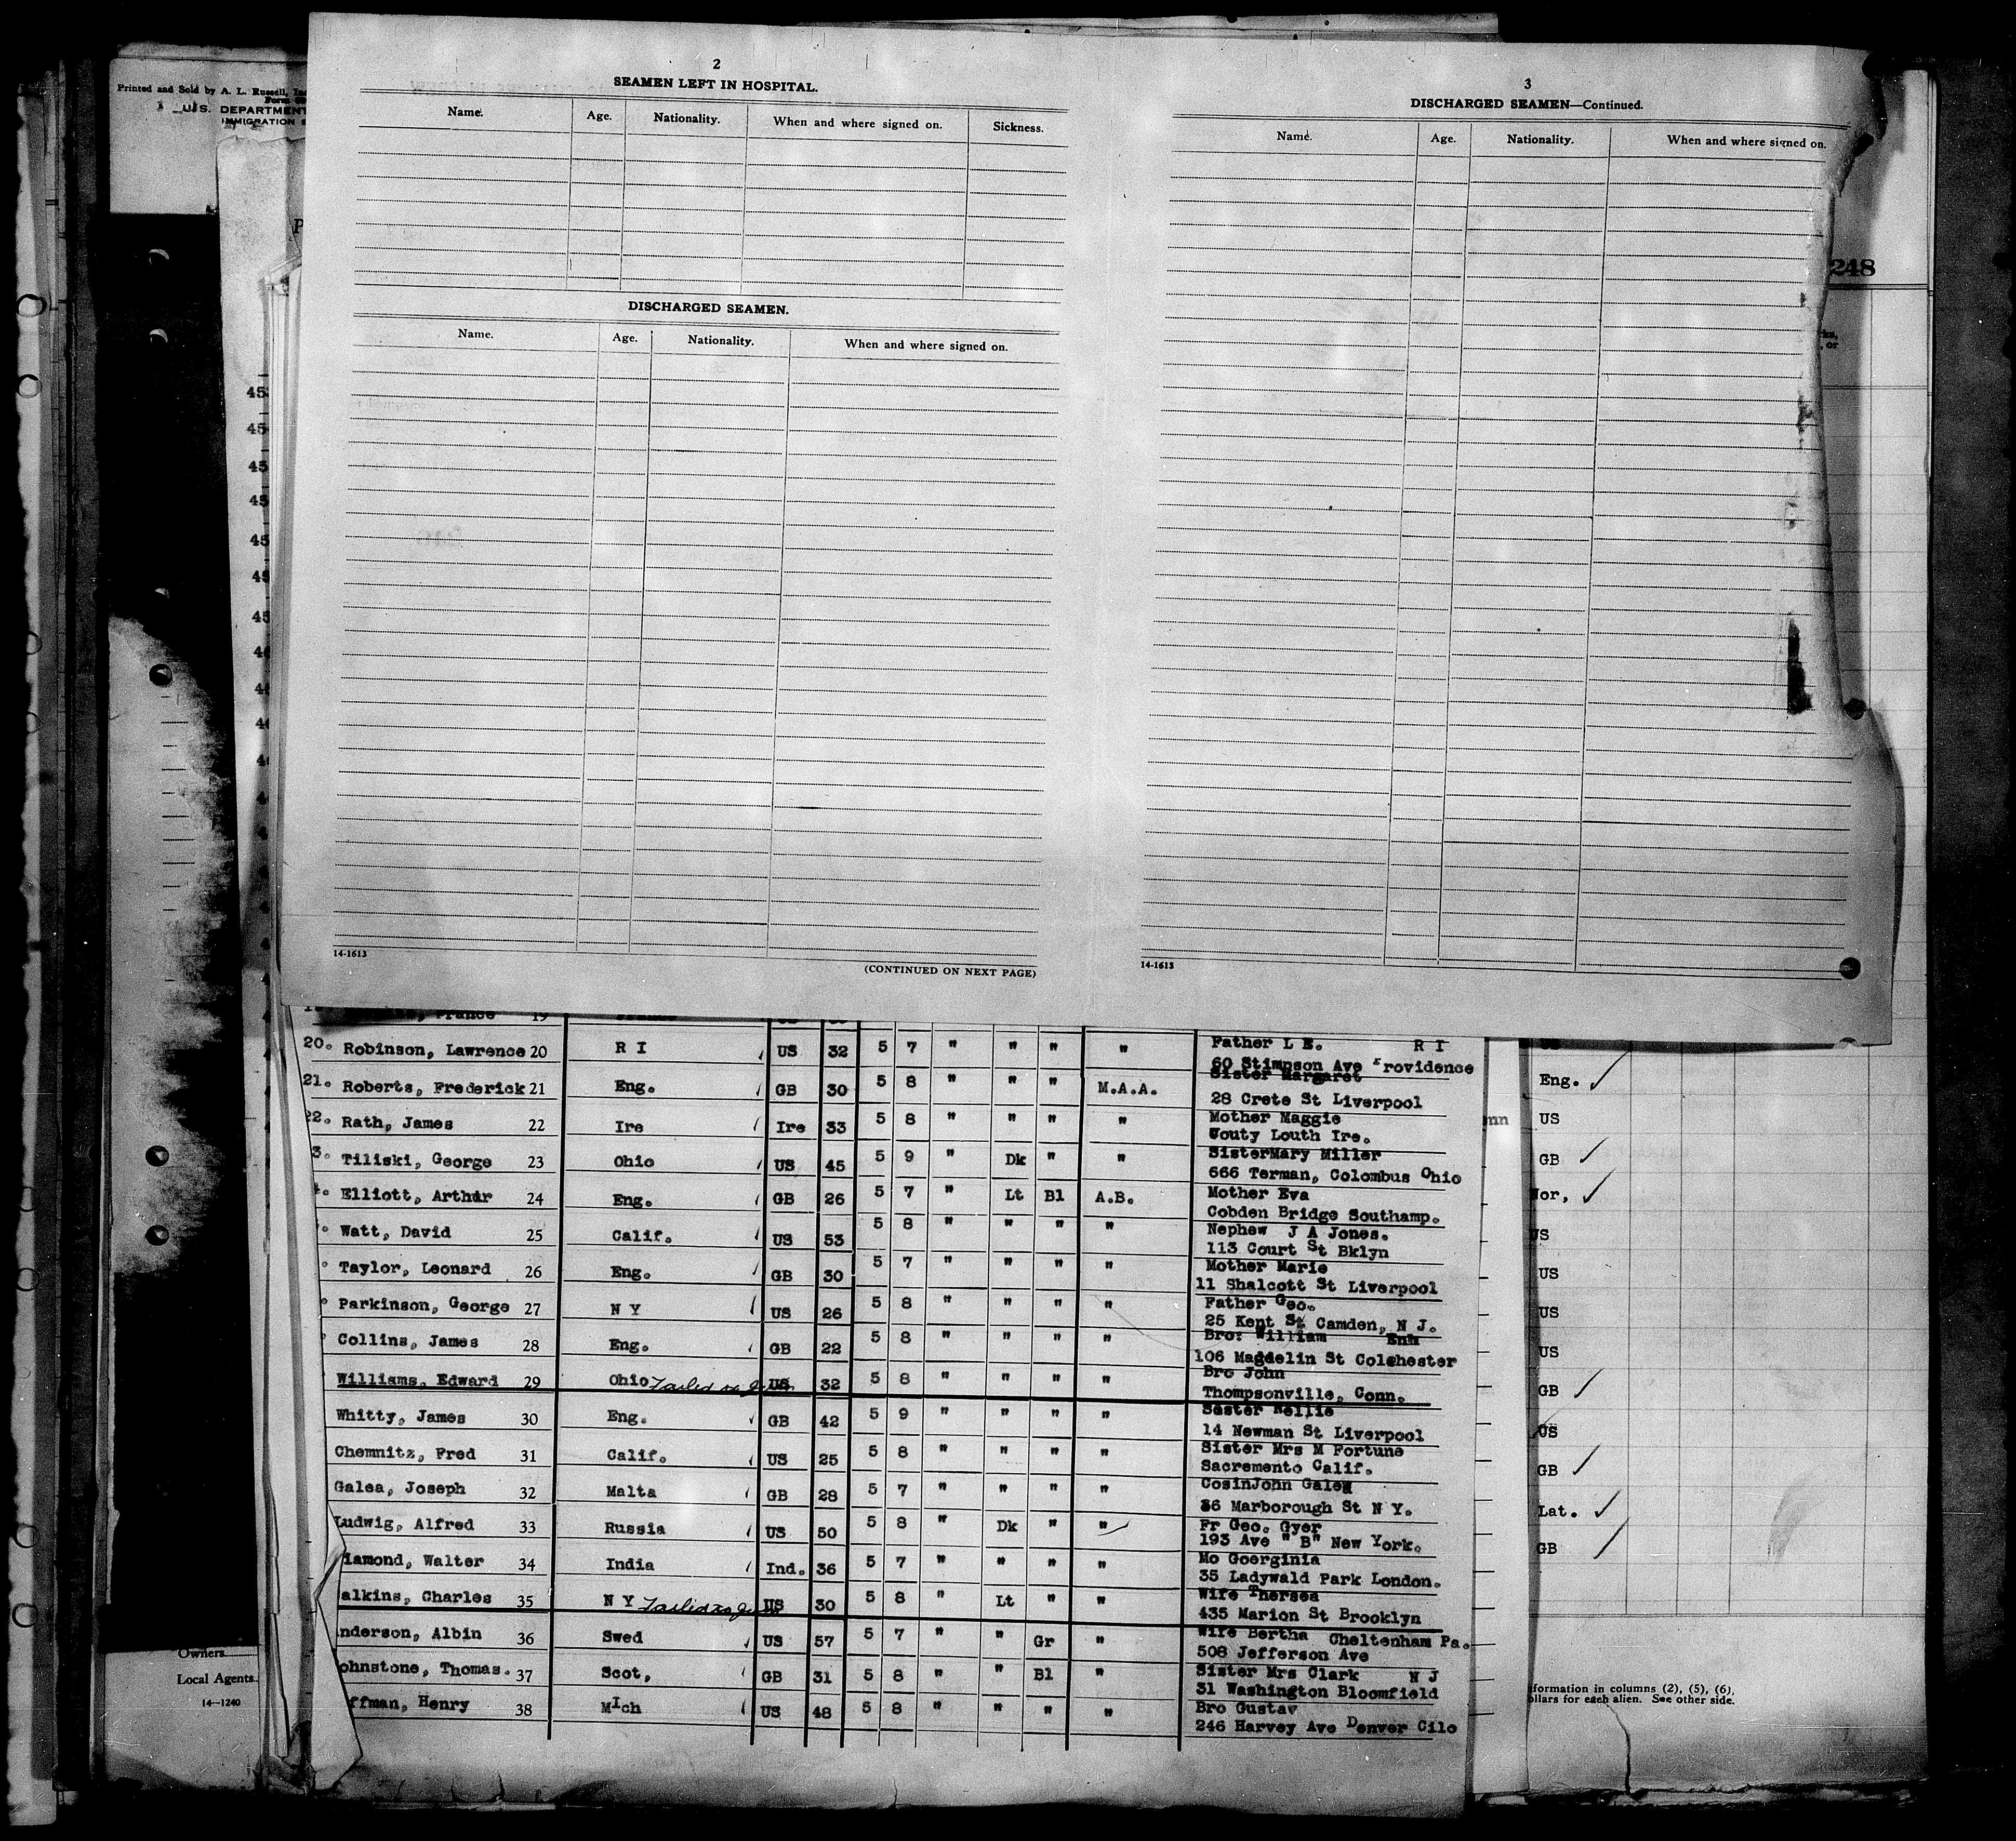 Printed and Sold by A. L. Russell,
U.S. DEPARTMENT
IMMIGRATION
2
SEAMEN LEFT IN HOSPITAL.
Name. Age. Nationality. When and where signed on. Sickness.
DISCHARGED SEAMEN.
Name. Age. Nationality. When and where signed on.
14-1613
(CONTINUED ON NEXT PAGE)
3
DISCHARGED SEAMEN—Continued.
Name. Age. Nationality. When and where signed on.
14-1613
248
19
20. Robinson, Lawrence 20 R I US 32 5 7 " " " " Father L E. R I
60 Stimpson Ave Providence
21. Roberts, Frederick 21 Eng. GB 30 5 8 " " " M.A.A. Sister Margaret
28 Crete St Liverpool
22. Rath, James 22 Ire Ire 33 5 8 " " " " Mother Maggie
Couty Louth Ire.
3. Tiliski, George 23 Ohio US 45 5 9 " Dk " " SisterMary Miller
666 Terman, Colombus Ohio
Elliott, Arthur 24 Eng. GB 26 5 7 " Lt Bl A.B. Mother Eva
Cobden Bridge Southamp.
Watt, David 25 Calif. US 53 5 8 " " " " Nephew J A Jones.
113 Court St Bklyn
Taylor, Leonard 26 Eng. GB 30 5 7 " " " " Mother Marie
11 Shalcott St Liverpool
Parkinson, George 27 N Y US 26 5 8 " " " " Father Geo.
25 Kent St Camden, N J.
Collins, James 28 Eng. GB 22 5 8 " " " " Bro: William Enh
106 Magdelin St Colchester
Williams, Edward 29 Ohio Failed to Join US 32 5 8 " " " " Bro John
Thompsonville, Conn.
Whitty, James 30 Eng. GB 42 5 9 " " " " Sister Nellie
14 Newman St Liverpool
Chemnitz, Fred 31 Calif. US 25 5 8 " " " " Sister Mrs M Fortune
Sacremento Calif.
Galea, Joseph 32 Malta GB 28 5 7 " " " " CosinJohn Galea
36 Marborough St N Y.
Ludwig, Alfred 33 Russia US 50 5 8 " Dk " " Fr Geo. Gyer
193 Ave "B" New York.
iamond, Walter 34 India Ind. 36 5 7 " " " " Mo Goerginia
35 Ladywald Park London.
alkins, Charles 35 N Y Failed to Join US 30 5 8 " Lt " " Wife Thersea
435 Marion St Brooklyn
nderson, Albin 36 Swed US 57 5 7 " " Gr " Wife Bertha Cheltenham Pa.
508 Jefferson Ave
ohnstone, Thomas. 37 Scot, GB 31 5 8 " " Bl " Sister Mrs Clark N J
31 Washington Bloomfield
ffman, Henry 38 Mich US 48 5 8 " " " " Bro Gustav
246 Harvey Ave Denver Cilo
Eng.
US
nn
GB
Nor,
US
US
US
US
GB
US
GB
Lat.
GB
Owners
Local Agents
14—1240
formation in columns (2), (5), (6),
ollars for each alien. See other side.